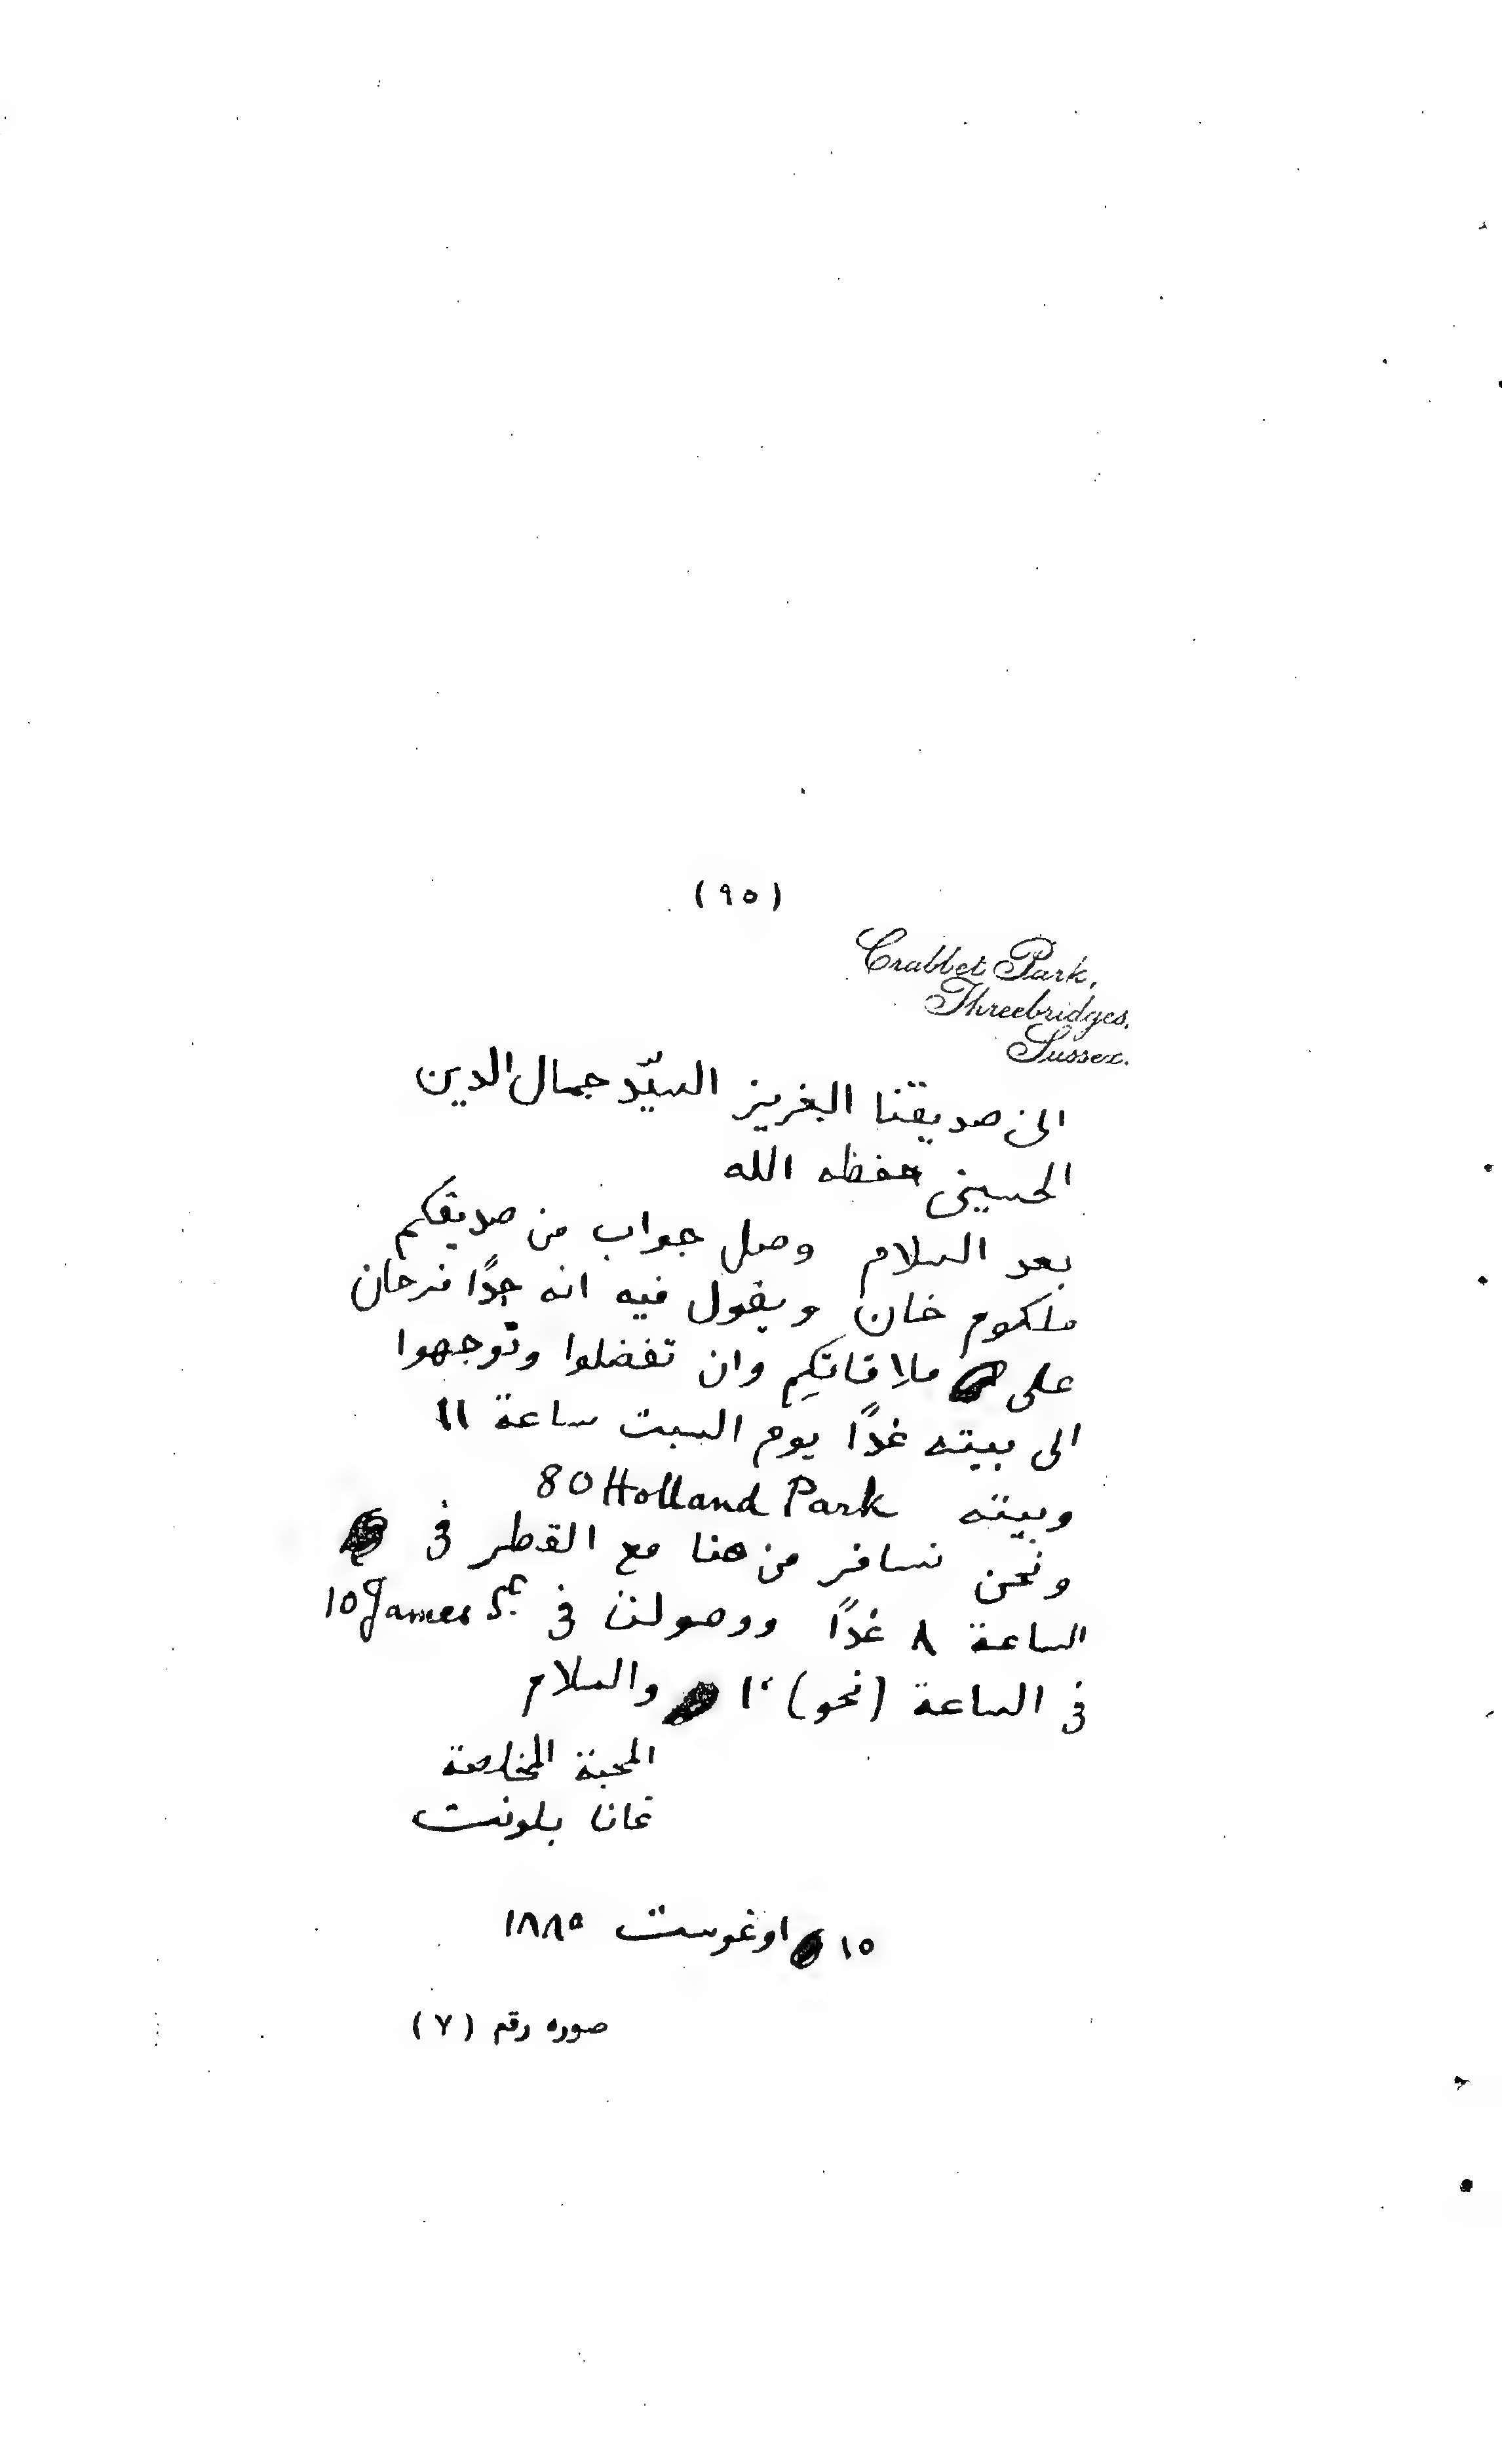 (٩٥)
Crabbet Park,
Threebridges,
Sussex.
الى صديقنا العزيز السيّد جمال الدين
الحسينى حفظه الله
بعد السلام وصل جواب من صديقكم
ملكوم خان ويقول فيه انه جدًا فرحان
على ملاقاتكم وان تفضلوا وتوجهوا
الى بيته غدًا يوم السبت ساعة ١١
وبيته 80 Holland Park
ونحن نسافر من هنا مع القطر فى
الساعة ٨ غدًا ووصولنا فى 10 James St
فى الساعة (نحو) ١٠ والسلام
المحبة المخلصة
عانا بلونت
١٥ اوغوست ١٨٨٥
صوره رقم (٧)